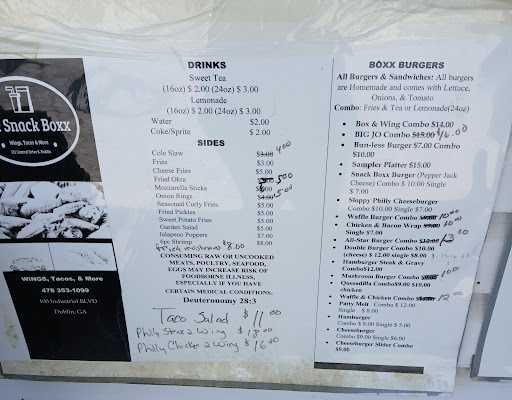 Snack Boxx
Wings, Tacos & More
WINGS, Tacos, & More
478 353-1099
100 Industrial BLVD
Dublin, GA
DRINKS
Sweet Tea
(16oz) $ 2.00 (24oz) $ 3.00
Lemonade
(16oz) $ 2.00 (24oz) $ 3.00
Water $2.00
Coke/Sprite $ 2.00
SIDES
Cole Slaw $3.00 4.00
Fries $3.00
Cheese Fries $5.00
Fried Okra
Mozzarella Sticks $5.00
Onion Rings 5.00
Seasoned Curly Fries $5.00
Fried Pickles $5.00
Sweet Potato Fries $5.00
Garden Salad $5.00
Jalapeno Poppers $7.00
6pc Shrimp $8.00
Fried mushroom $8.00
CONSUMING RAW OR UNCOOKED
MEATS, POULTRY, SEAFOOD,
EGGS MAY INCREASE RISK OF
FOODBORNE ILLNESS,
ESPECIALLY IF YOU HAVE
CERTAIN MEDICAL CONDITIONS.
Deuteronomy 28:3
Taco Salad $ 11.00
Philly Steak 2 Wing $
Philly Chicken 2 Wing $ 16.00
BOXX BURGERS
All Burgers & Sandwiches: All burgers
are Homemade and comes with Lettuce,
Onions, & Tomato
Combo: Fries & Tea or Lemonade(24oz)
• Box & Wing Combo $14.00
• BIG JO Combo $15.00 16.00
• Bun-less Burger $7.00 Combo
$10.00
• Sampler Platter $15.00
• Snack Boxx Burger (Pepper Jack
Cheese) Combo $ 10.00 Single
$ 7.00
• Sloppy Philly Cheeseburger
Combo $10.00 Single $7.00
• Waffle Burger Combo 10.00
• Chicken & Bacon Wrap
Single $7.00
• All-Star Burger Combo 13.00
• Double Burger Combo $10.00
(cheese) $ 12.00 single $8.00
• Hamburger Steak & Gravy
Combo$12.00
• Mushroom Burger Combo
• Quesadilla Combo$9.00 $10.00
chicken
• Waffle & Chicken Combo 12.00
• Patty Melt Combo $ 12.00
Single $ 8.00
• Hamburger
Combo $ 8.00 Single $ 5.00
• Cheeseburger
Combo $9.00 Single $6.00
• Cheeseburger Slider Combo
$9.00